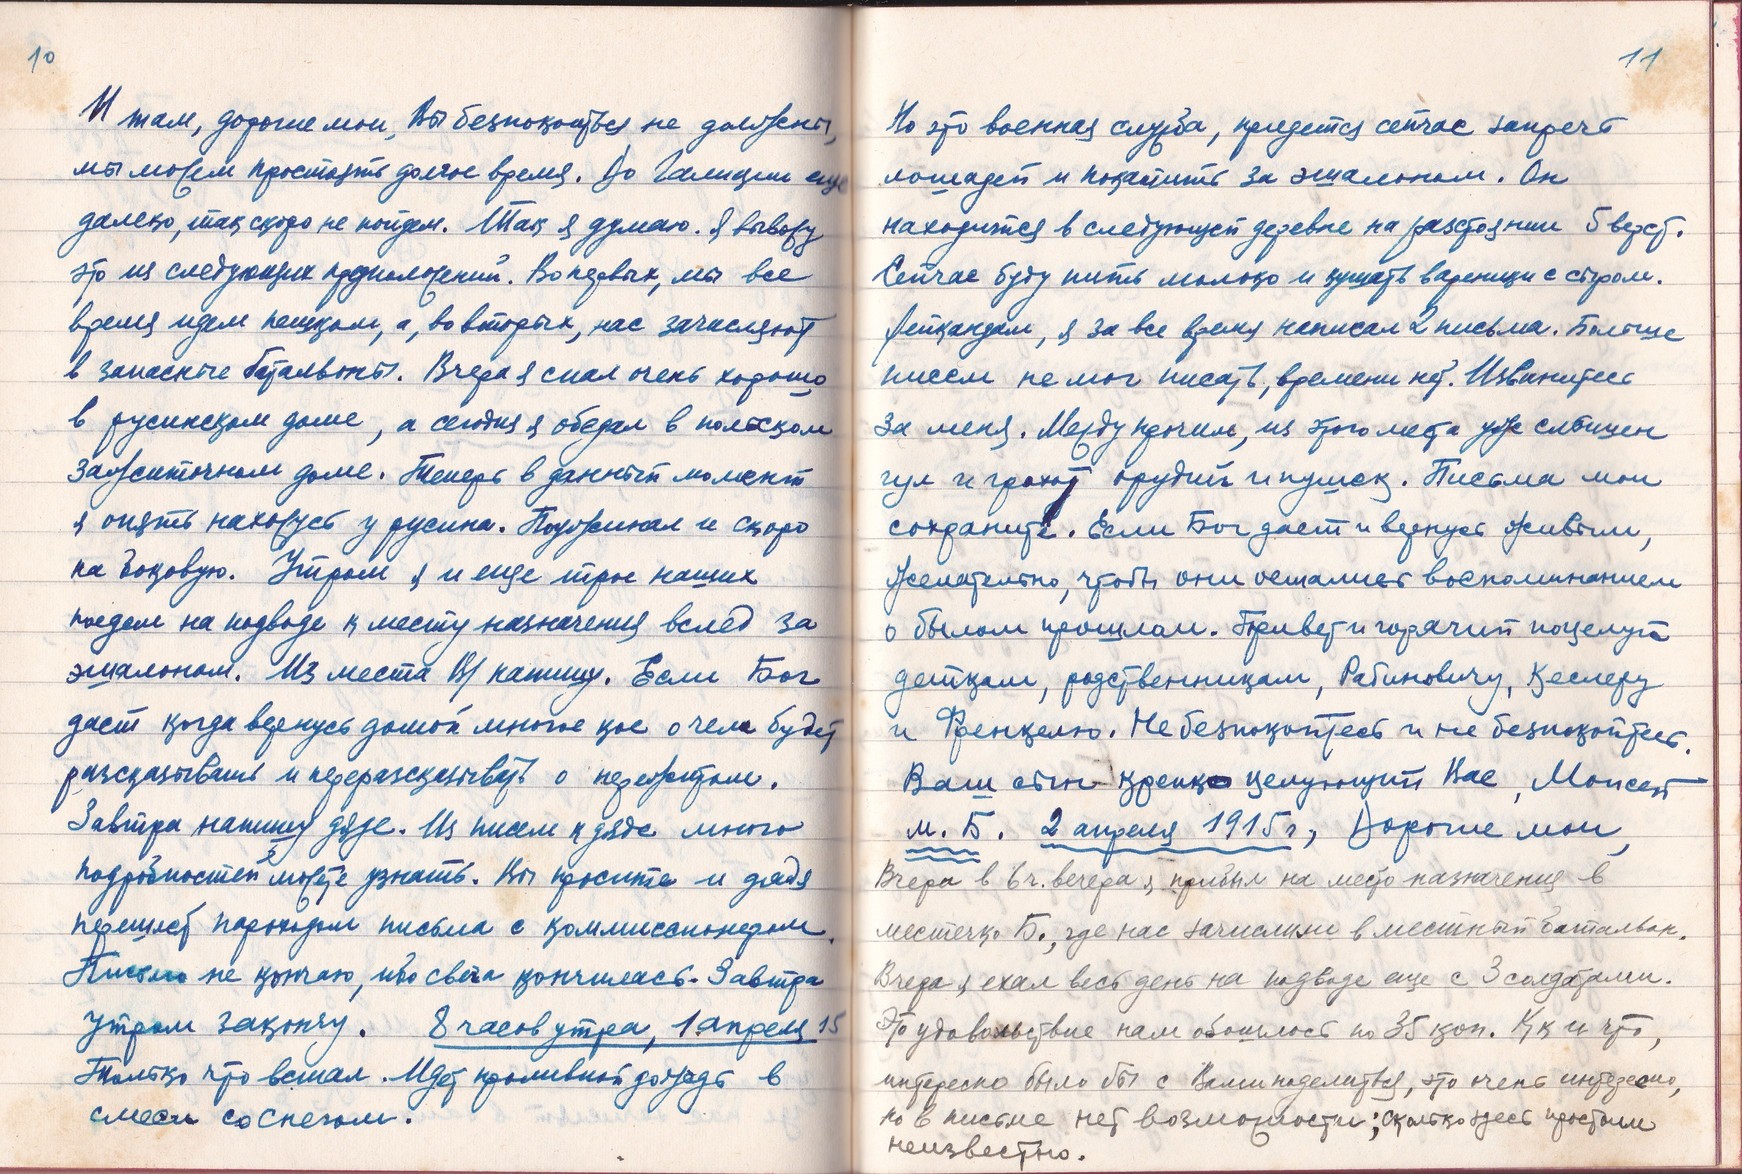 10
И там, дорогие мои, Вы безпокоиться не должны,
мы можем простоять долгое время. До Галиции еще
далеко, так скоро не пойдем. Так я думаю. Я вывожу
это из следующих предположений. Во первых, мы все
время идем пешком, а, во вторых, нас зачисляют
в запасные батальоны. Вчера я спал очень хорошо
в русинском доме, а сегодня я обедал в польском
зажиточном доме. Теперь в данный момент
я опять нахожусь у русина. Поужинал и скоро
на боковую. Утром я и еще трое наших
поедем на подводе к месту назначения вслед за
эшалоном. Из места Б/ напишу. Если Бог
даст когда вернусь домой многое кое о чем будет
разсказывать и переразсказывать о пережитом.
Завтра напишу дяде. Из писем к дяде много
подробностей можете узнать. Вы просите и дядя
перешлет пароходом письма с коммиссионером.
Письмо не кончаю, ибо свеча кончилась. Завтра
утром закончу. 8 часов утра, 1 апреля 15
Только что встал. Идет проливной дождь в
смеси со снегом.
11
Но это военная служба, придется сейчас запречь
лошадей и покатить за эшалоном. Он
находится в следующей деревне на разстоянии 5 верст.
Сейчас буду пить молоко и кушать вареники с сыром.
Лейкандам, я за все время написал 2 письма. Больше
писем не мог писать, времени нет. Извинитесь
за меня. Между прочим, из этого места уже слышен
гул и грохот орудий и пушек. Письма мои
сохраните. Если Бог даст и вернусь живым,
желательно, чтобы они остались воспоминанием
о былом прошлом. Привет и горячий поцелуй
деткам, родственникам, Рабиновичу, Кеслеру
и Френкелю. Не безпокойтесь и не безпокойтесь.
Ваш сын крепко целующий Вас, Моисей
м. Б. 2 апреля 1915 г, Дорогие мои,
Вчера в 6 ч. вечера я прибыл на место назначения в
местечко Б., где нас зачислили в местный батальон.
Вчера я ехал весь день на подводе еще с 3 солдатами.
Это удовольствие нам обошлось по 35 коп. Как и что,
интересно было бы с Вами поделиться, это очень интересно,
но в письме нет возможности; сколько здесь простоим
неизвестно.